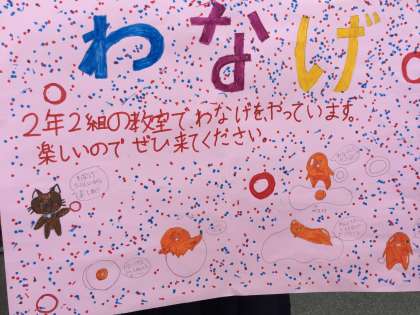 わなげ
2年2組の教室でわなげをやっています。
楽しいのでぜひ来てください。